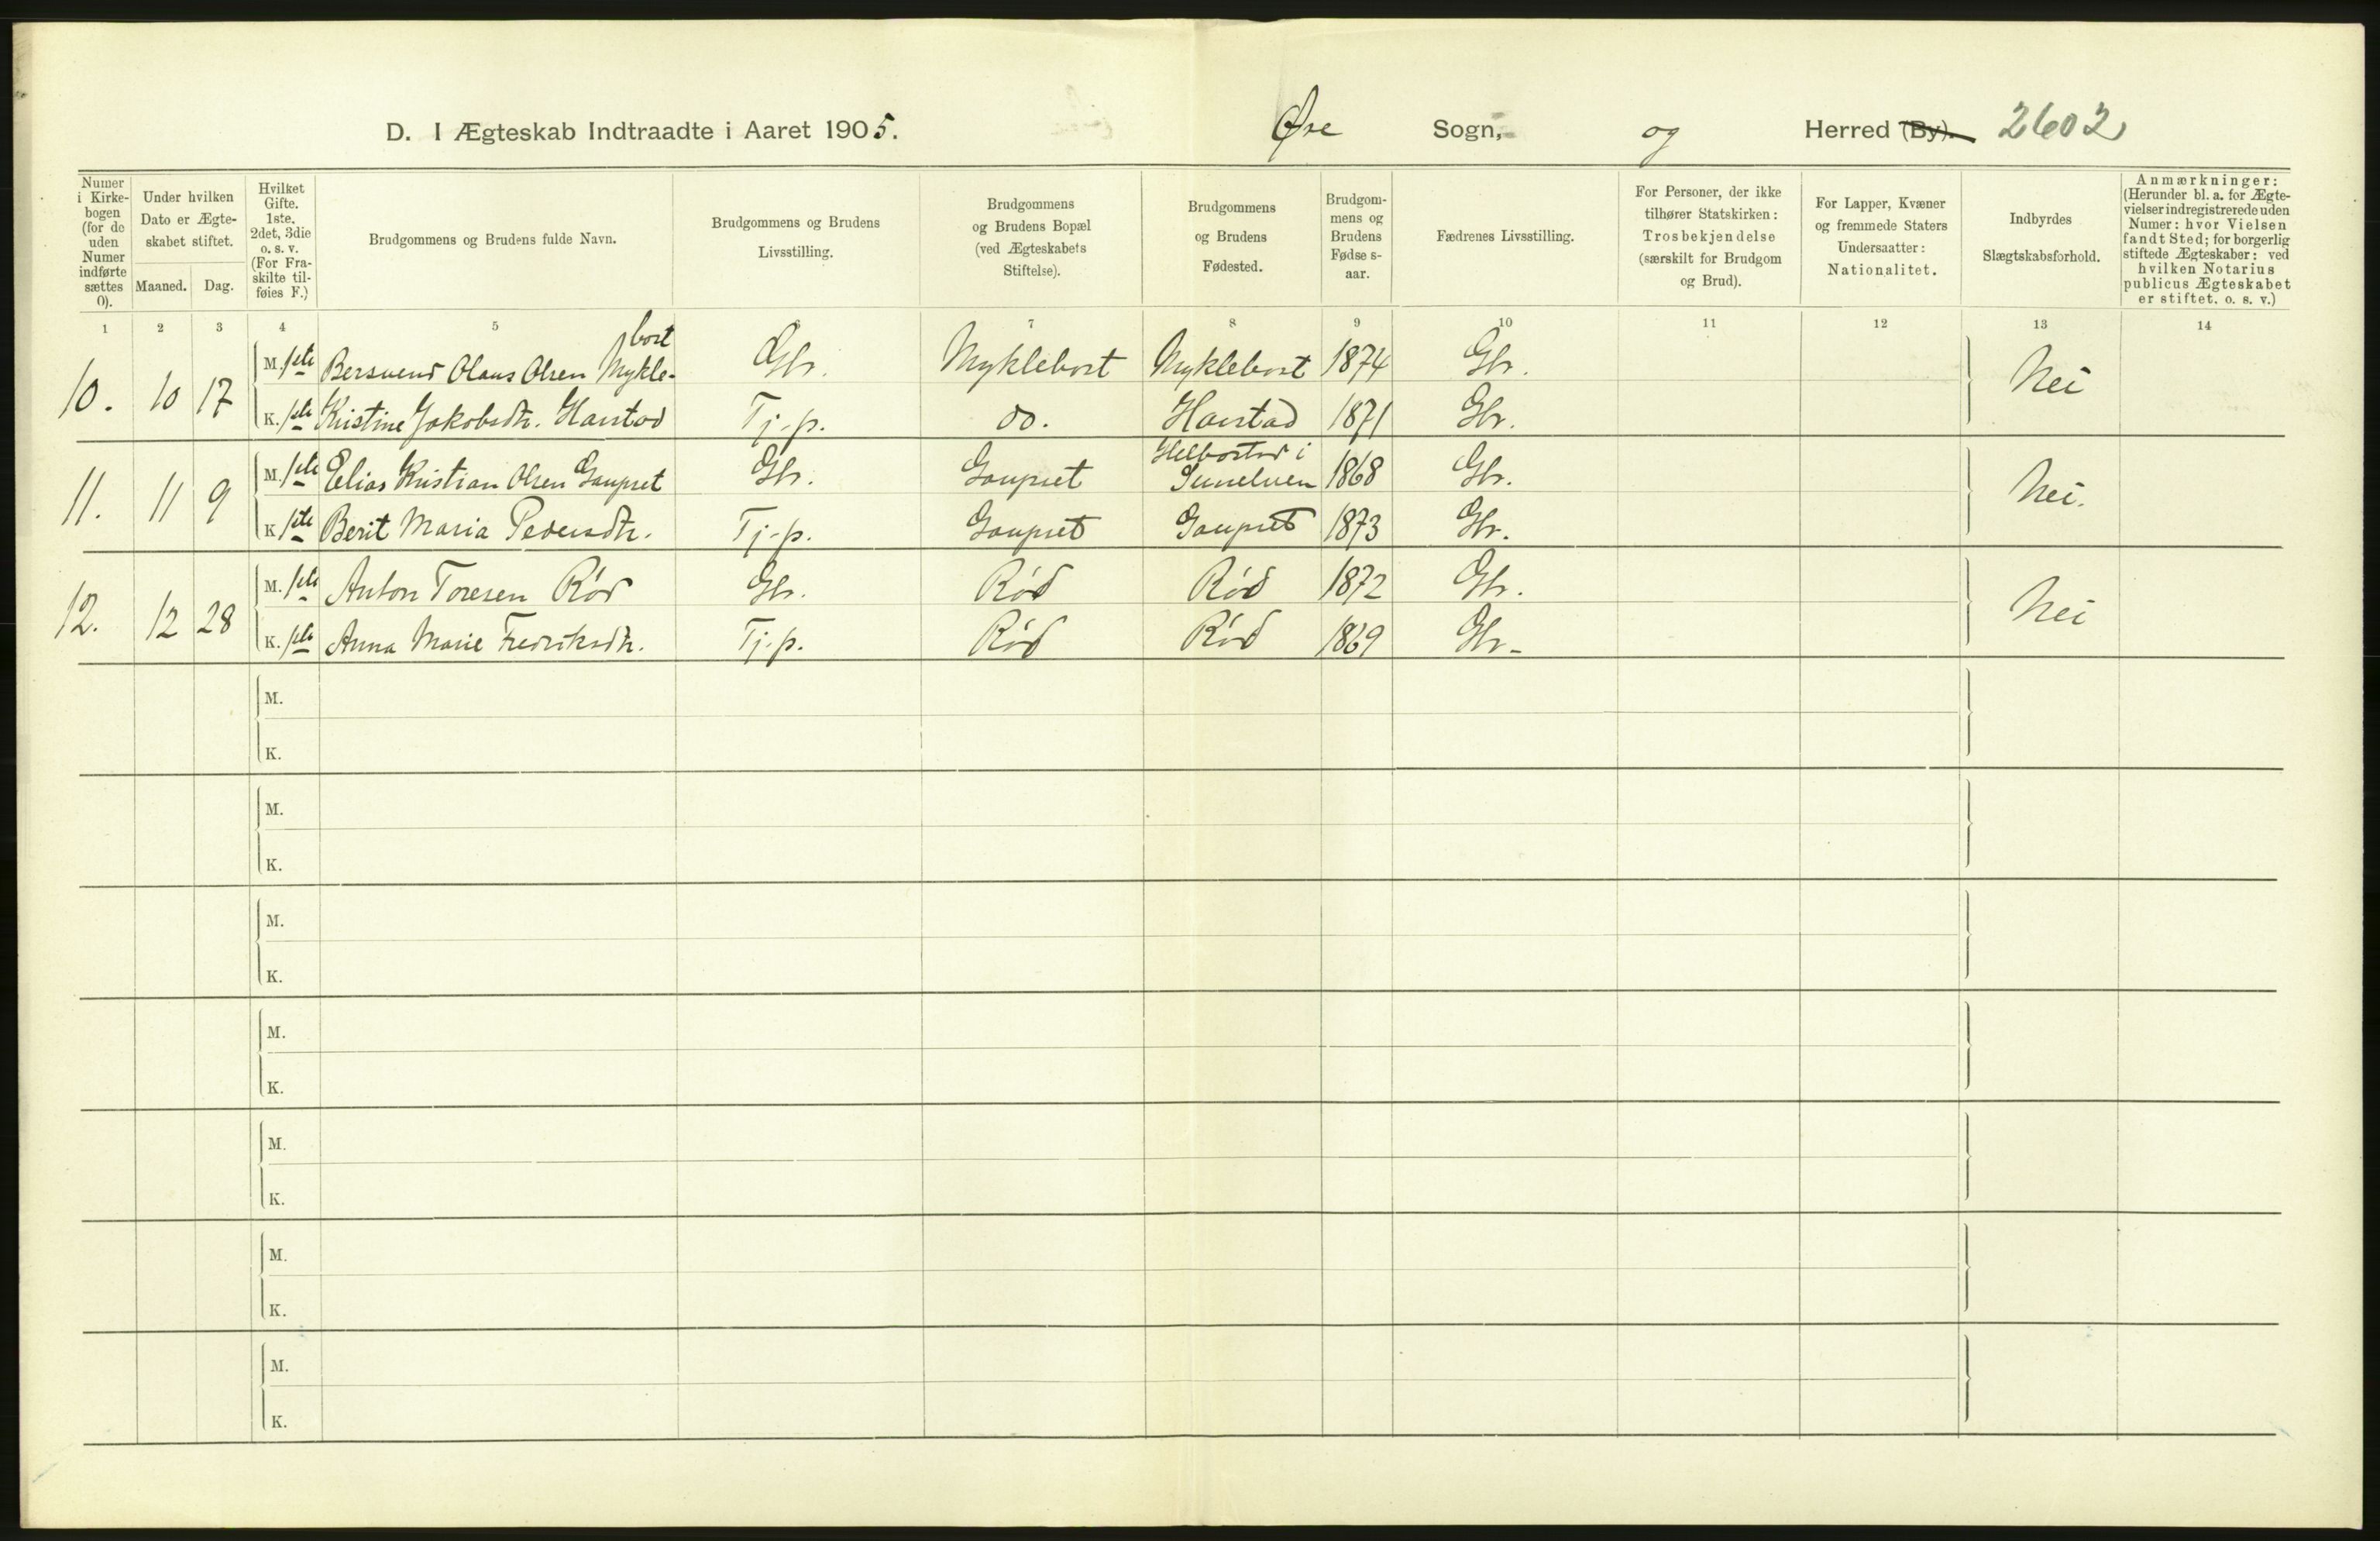 D. I Ægteskab Indtraadte i Aaret 1905. Øre Sogn, og Herred (By). 2602
Numer i Kirkebogen (for de uden Numer indførte sættes 0).
Under hvilken Dato er Ægteskabet stiftet.
Maaned. Dag.
Hvilket Gifte. 1ste. 2det, 3die o. s. v. (For Fraskilte tilføies F.)
Brudgommens og Brudens fulde Navn.
Brudgommens og Brudens Livsstilling.
Brudgommens og Brudens Bopæl (ved Ægteskabets Stiftelse).
Brudgommens og Brudens Fødested.
Brudgommens og Brudens Fødselsaar.
Fædrenes Livsstilling.
For Personer, der ikke tilhører Statskirken: Trosbekjendelse (særskilt for Brudgom og Brud).
For Lapper, Kvæner og fremmede Staters Undersaatter: Nationalitet.
Indbyrdes Slægtskabsforhold.
Anmærkninger: (Herunder bl. a. for Ægtevielser indregistrerede uden Numer: hvor Vielsen fandt Sted; for borgerlig stiftede Ægteskaber: ved hvilken Notarius publicus Ægteskabet er stiftet. o. s. v.)
1 2 3 4 5 6 7 8 9 10 11 12 13 14
10. 10 17 M. 1ste Bersvend Olaus Olsen Myklebost Gbr. Myklebost Myklebost 1874 Gbr. Nei
K. 1ste Kristine Jakobsdtr. Harstad Tj.p. do. Harstad 1871 Gbr.
11. 11 9 M. 1ste Elias Kristian Olsen Gaupset Gbr. Gaupset Helbostad i Sunelven 1868 Gbr. Nei.
K 1ste Berit Maria Pedersdtr. Tj-p. Gaupset Gaupset 1873 Gbr.
12. 12 28 M. 1ste Anton Toresen Rød Gbr. Rød Rød 1872 Gbr. Nei
K. 1ste Anna Marie Fredriksdtr. Tj.p. Rød Rød 1869 Gbr-
M.
K.
M.
K.
M.
K.
M.
K.
M.
K.
M.
K.
M.
K.